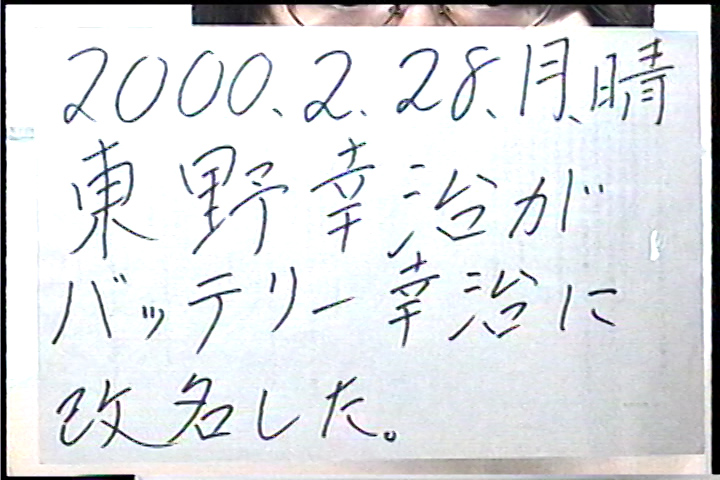 2000.2.28.月.晴
東野幸治が
バッテリー幸治に
改名した。